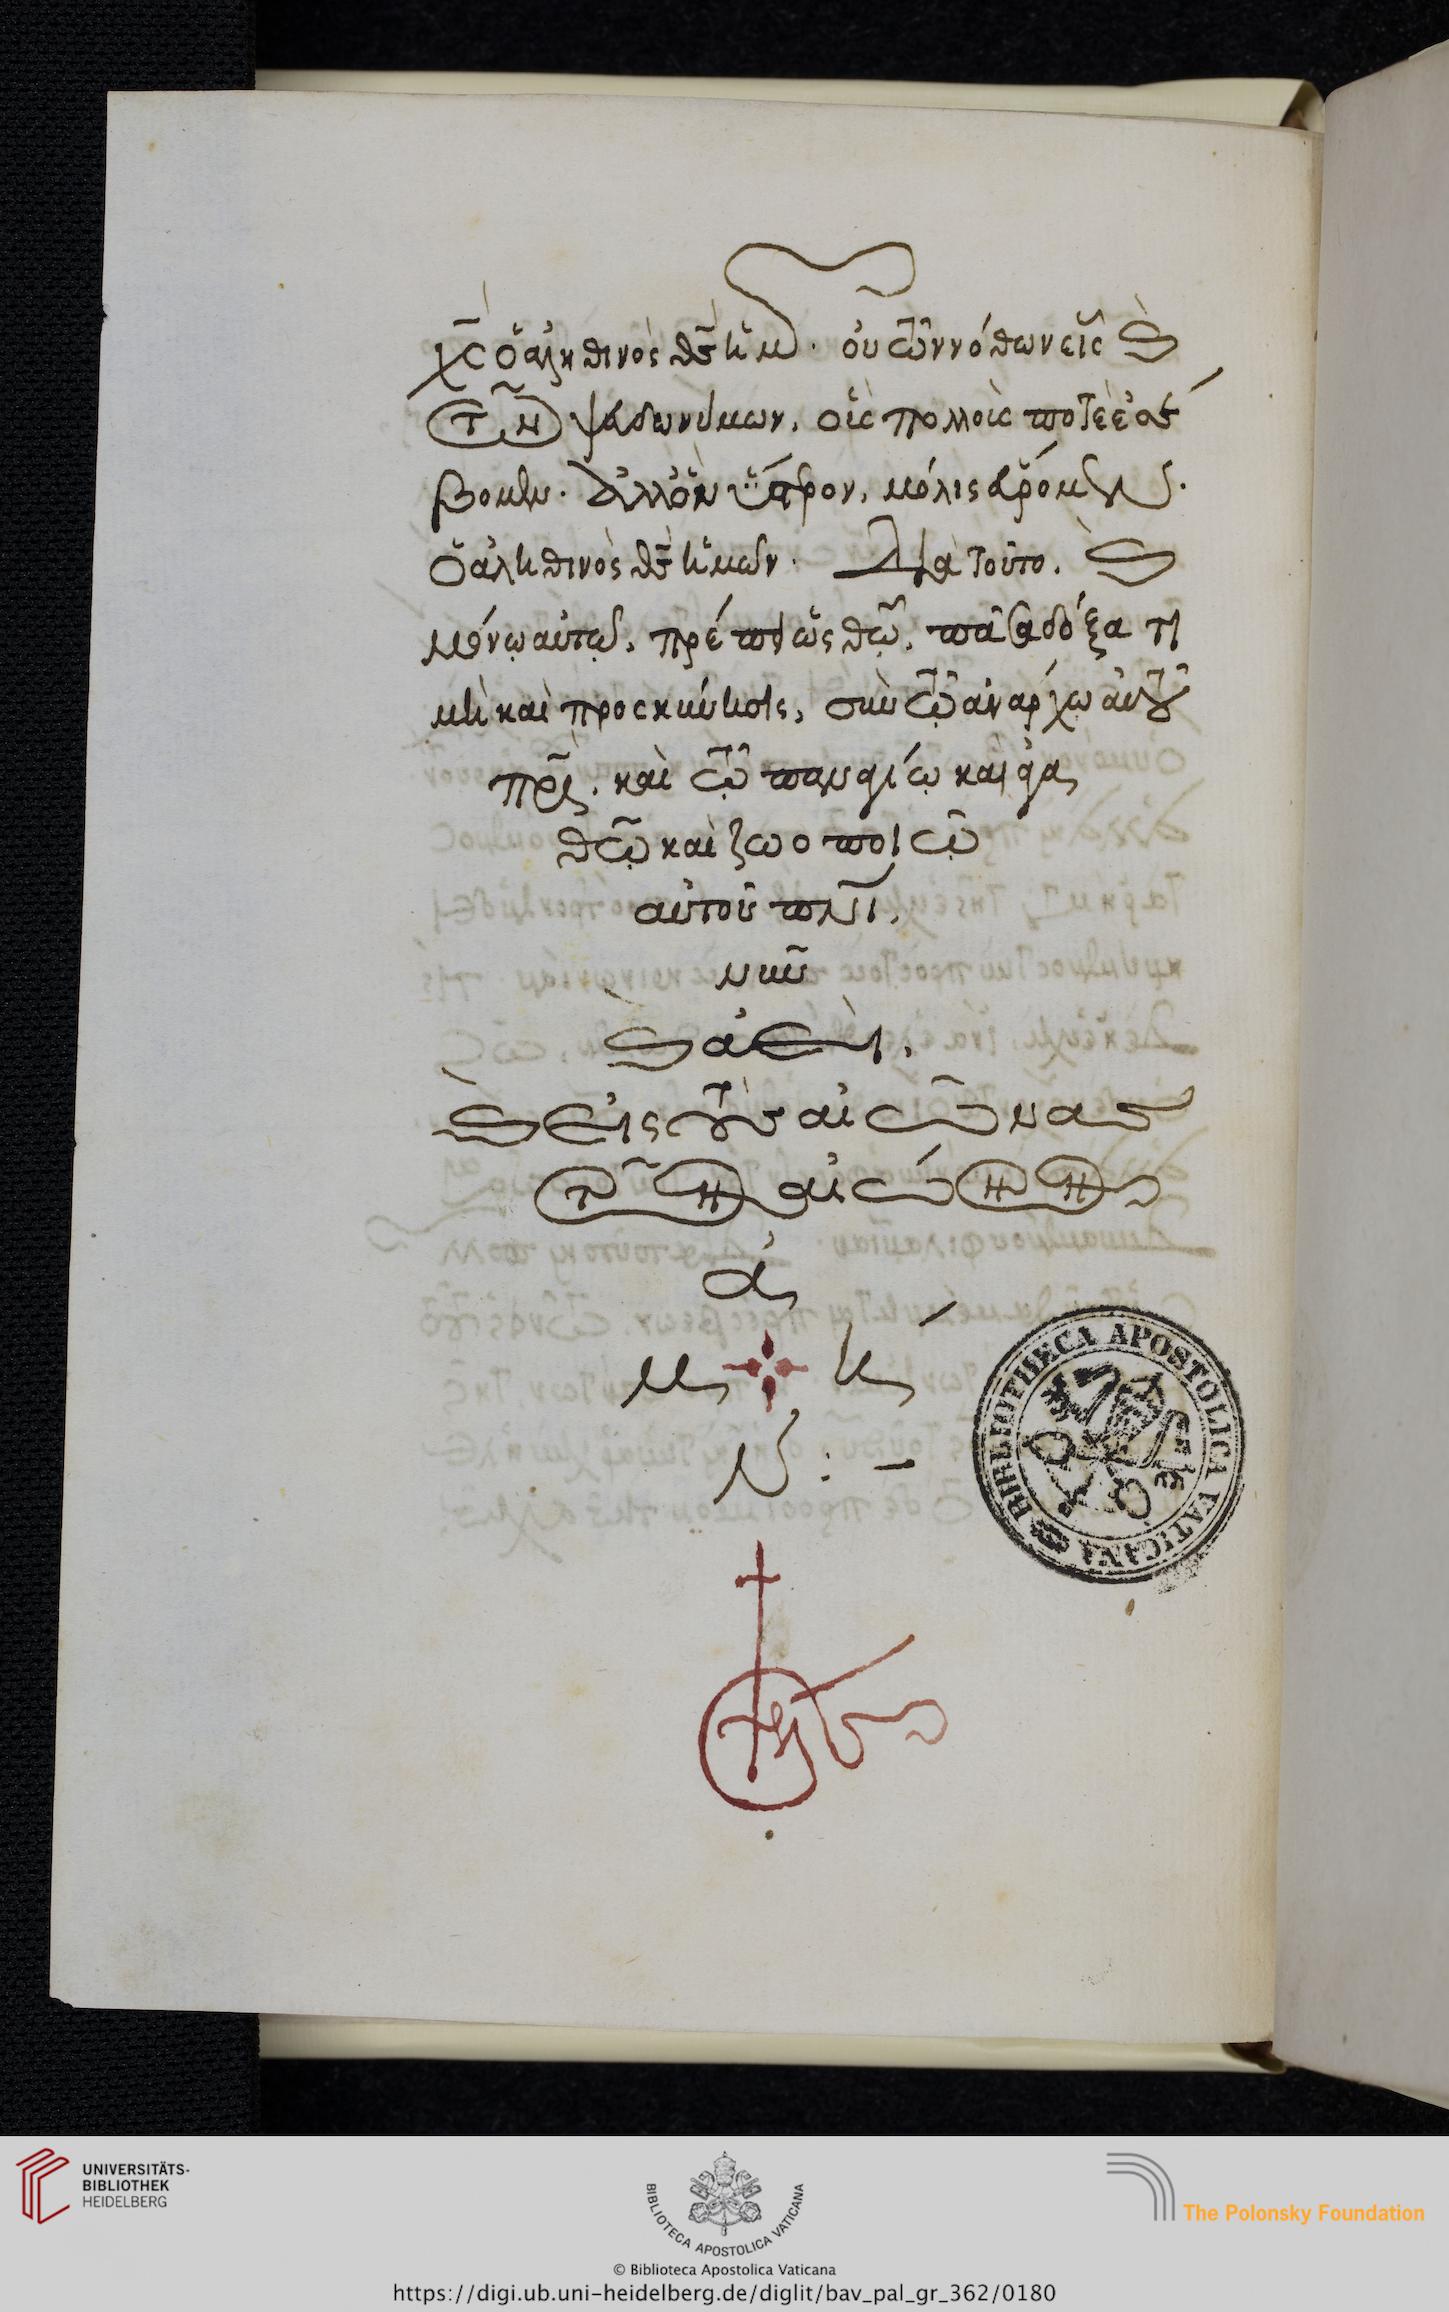 χ̅ς̅ ὁ ἀληθινὸς θ̅ς̅ ἡμῶν. οὐ τῶν νόθων εἷς καὶ
τῶν ψευδωνύμων. οἷς πολλοῖς ποτὲ
ὕστερον, μόλις
ὁ ἀληθινὸς θ̅ς̅ ἡμῶν. διὰ τοῦτο. καὶ
μόνῳ αὐτῷ. πρέπει ὡς θῶ, πᾶσα δόξα τι
μὴ καὶ προσκύνησις, σὺν τῷ ἀνάρχῳ αὐτοῦ
π̅ρ̅ι̅. καὶ τῷ παναγίῳ καὶ ἀγα
θῷ καὶ ζωοποιῷ
αὐτοῦ π̅ν̅ι̅.
νῦν
καὶ ἀεὶ,
καὶ εἰς τοὺς αἰῶνας
τῶν αἰώνων
ἀ
μ ή
ν : –
BIBLIOTHECA APOSTOLICA VATICANA
UNIVERSITÄTS-
BIBLIOTHEK
HEIDELBERG
BIBLIOTECA APOSTOLICA VATICANA
The Polonsky Foundation
© Biblioteca Apostolica Vaticana
https://digi.ub.uni-heidelberg.de/diglit/bav_pal_gr_362/0180